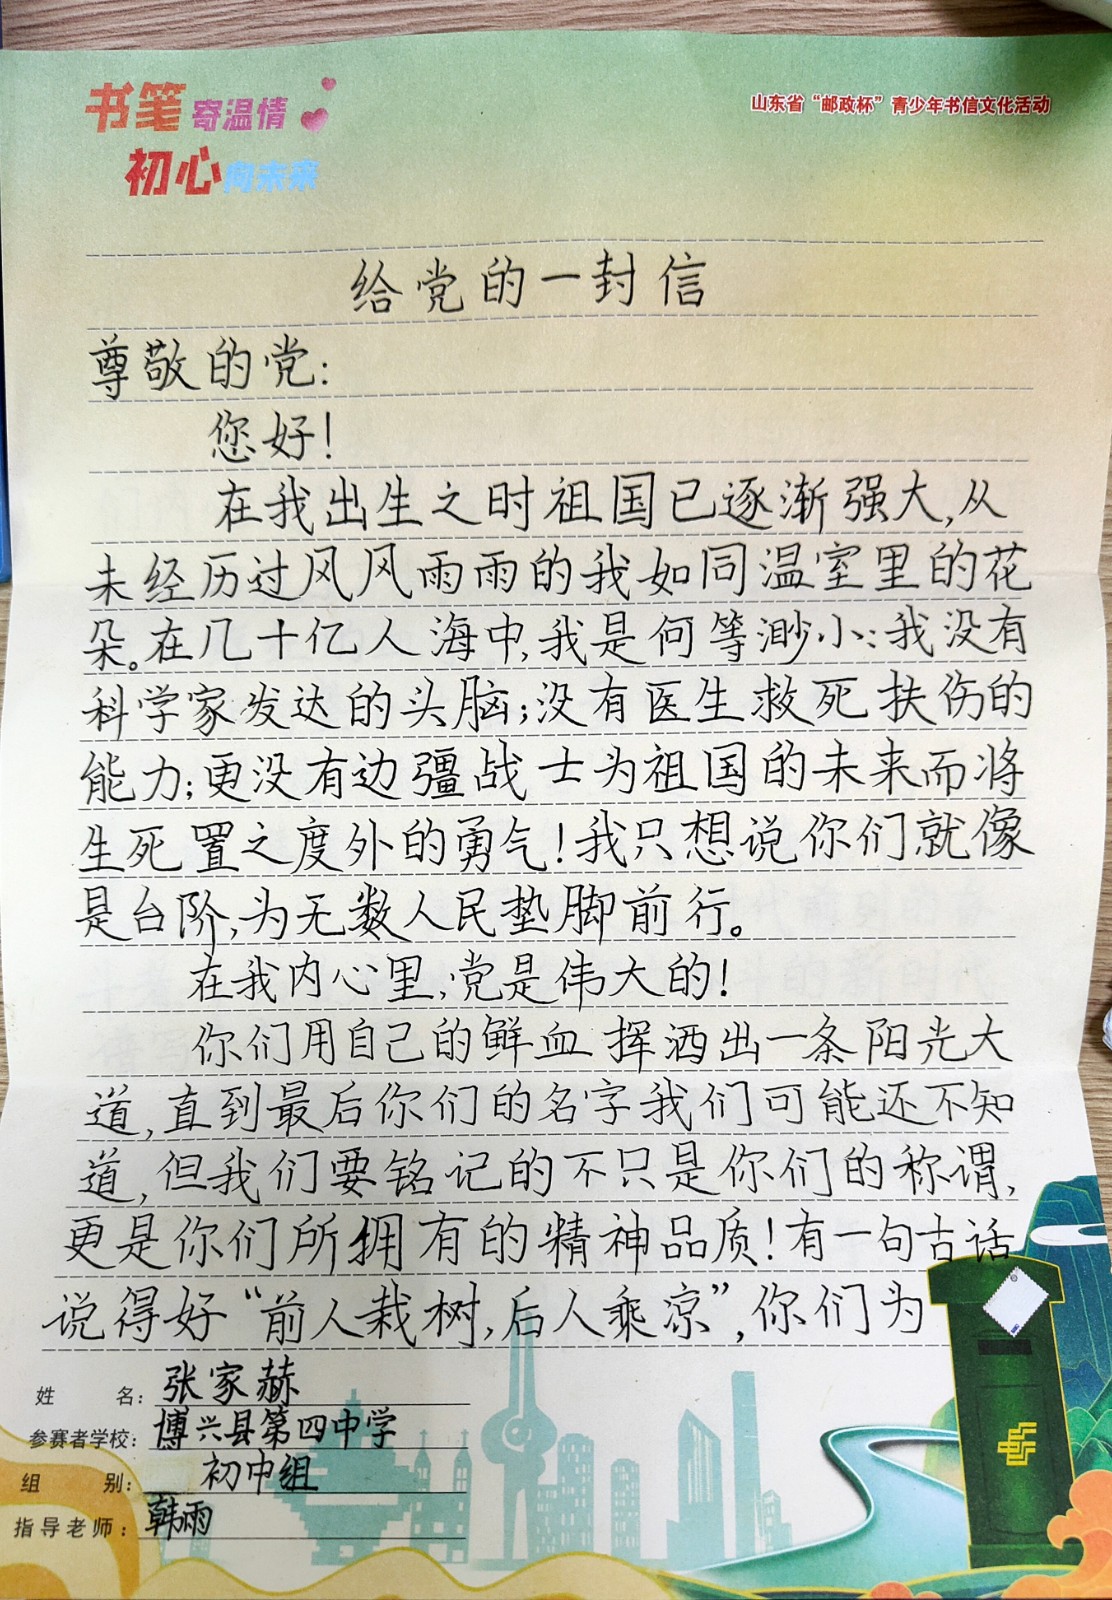 书笔寄温情
初心向未来
山东省“邮政杯”青少年书信文化活动
给党的一封信
尊敬的党:
您好!
在我出生之时祖国已逐渐强大,从
未经历过风风雨雨的我如同温室里的花
朵。在几十亿人海中,我是何等渺小:我没有
科学家发达的头脑;没有医生救死扶伤的
能力;更没有边疆战士为祖国的未来而将
生死置之度外的勇气!我只想说你们就像
是台阶,为无数人民垫脚前行。
在我内心里,党是伟大的!
你们用自己的鲜血挥洒出一条阳光大
道,直到最后你们的名字我们可能还不知
道,但我们要铭记的不只是你们的称谓,
更是你们所拥有的精神品质!有一句古话
说得好“前人栽树,后人乘凉”,你们为
姓名:张家赫
参赛者学校:博兴县第四中学
组别:初中组
指导老师:韩雨